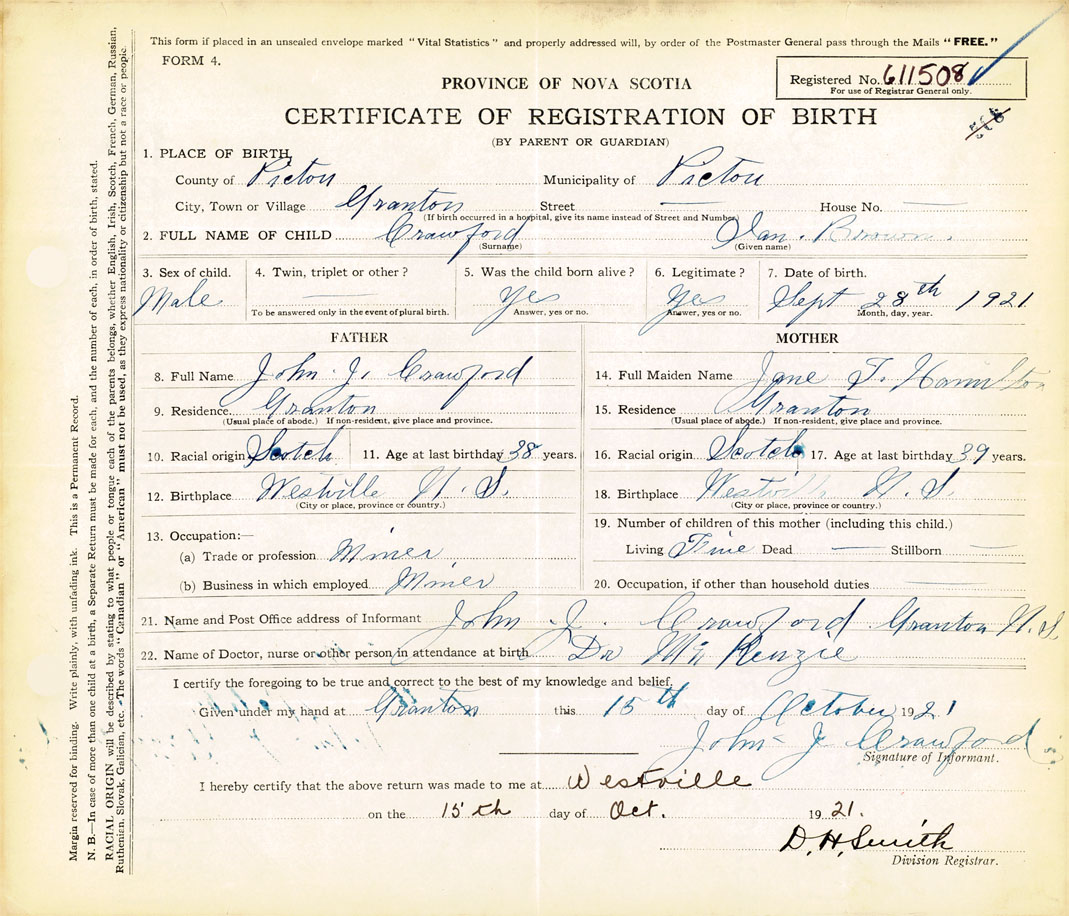 This form if placed in an unsealed envelope marked "Vital Statistics" and properly addressed will, by order of the Postmaster General pass through the Mails "FREE."
FORM 4.
Registered No. 611508
For use of Registrar General only.
PROVINCE OF NOVA SCOTIA
CERTIFICATE OF REGISTRATION OF BIRTH
(BY PARENT OR GUARDIAN)
1. PLACE OF BIRTH,
County of Pictou Municipality of Pictou
City, Town or Village Granton Street — House No. —
(If birth occurred in a hospital, give its name instead of Street and Number)
2. FULL NAME OF CHILD Crawford Ian. Brown.
(Surname) (Given name)
3. Sex of child. 4. Twin, triplet or other? 5. Was the child born alive? 6. Legitimate? 7. Date of birth.
Male — Yes Yes Sept 28th 1921
To be answered only in the event of plural birth. Answer, yes or no. Answer, yes or no. Month, day, year.
FATHER MOTHER
8. Full Name John J. Crawford 14. Full Maiden Name Jane F. Hamilton
9. Residence Granton 15. Residence Granton
(Usual place of abode.) If non-resident, give place and province. (Usual place of abode.) If non-resident, give place and province.
10. Racial origin Scotch 11. Age at last birthday 38 years. 16. Racial origin Scotch 17. Age at last birthday 39 years.
12. Birthplace Westville N. S. 18. Birthplace Westville N. S
(City or place, province or country.) (City or place, province or country.)
13. Occupation:— 19. Number of children of this mother (including this child.)
(a) Trade or profession Miner Living Five Dead — Stillborn —
(b) Business in which employed Miner 20. Occupation, if other than household duties —
21. Name and Post Office address of Informant John J. Crawford Granton N. S
22. Name of Doctor, nurse or other person in attendance at birth Dr McKenzie
I certify the foregoing to be true and correct to the best of my knowledge and belief.
Given under my hand at Granton this 15th day of October 1921
John J Crawford
Signature of Informant.
I hereby certify that the above return was made to me at Westville
on the 15th day of Oct. 1921.
D. H. Smith
Division Registrar.
Margin reserved for binding. Write plainly, with unfading ink. This is a Permanent Record.
N. B.—In case of more than one child at a birth, a Separate Return must be made for each, and the number of each, in order of birth, stated.
RACIAL ORIGIN will be described by stating to what people or tongue each of the parents belongs, whether English, Irish, Scotch, French, German, Russian,
Ruthenian, Slovak, Galician, etc. The words "Canadian" or "American" must not be used, as they express nationality or citizenship but not a race or people.